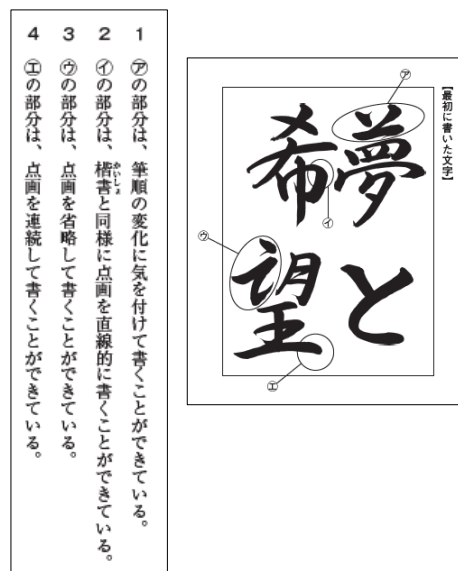 【最初に書いた文字】
夢と
希望
㋐
㋑
㋒
㋓
1 ㋐の部分は、筆順の変化に気を付けて書くことができている。
2 ㋑の部分は、楷書と同様に点画を直線的に書くことができている。
かいしょ
3 ㋒の部分は、点画を省略して書くことができている。
4 ㋓の部分は、点画を連続して書くことができている。